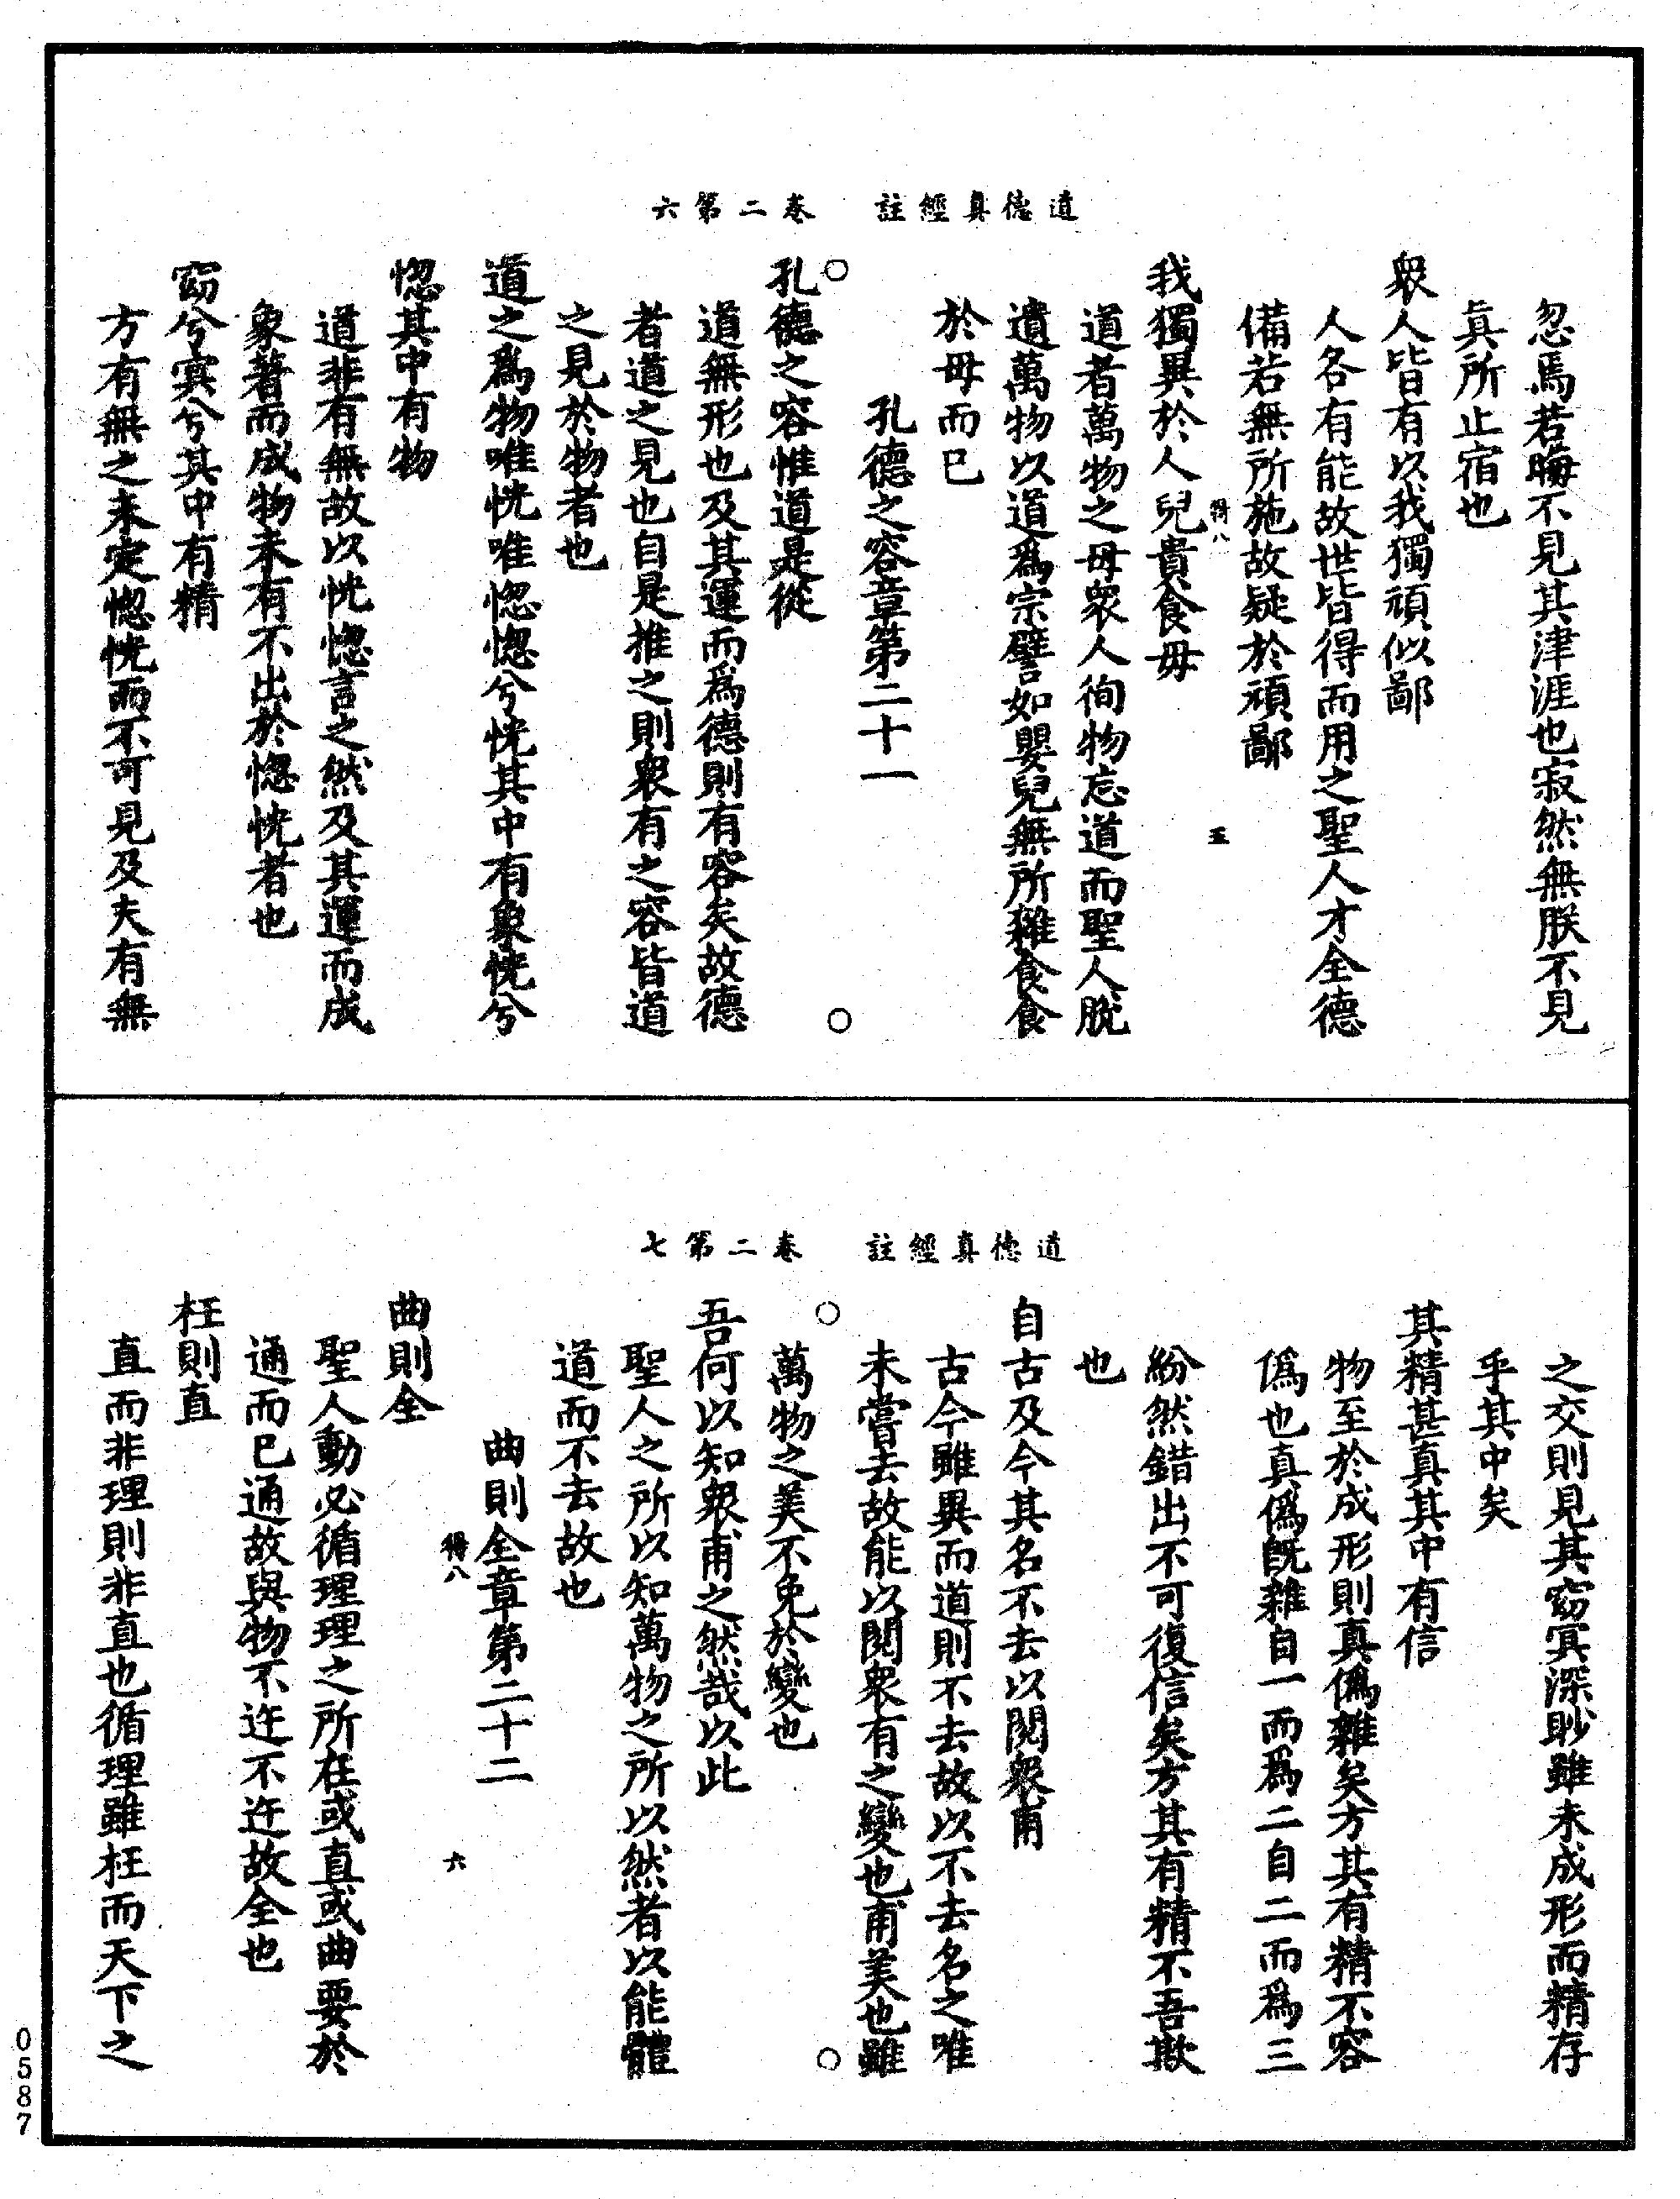 道德真經註　卷二第六
忽焉若晦不見其津涯也寂然無朕不見
其所止宿也
衆人皆有以我獨頑似鄙
人各有能故世皆得而用之聖人才全德
備若無所施故疑於頑鄙
得八　五
我獨異於人兒貴食母
道者萬物之母衆人徇物忘道而聖人脫
遺萬物以道爲宗譬如嬰兒無所雜食食
於母而已
孔德之容章第二十一
○　○
孔德之容惟道是從
道無形也及其運而爲德則有容矣故德
者道之見也自是推之則衆有之容皆道
之見於物者也
道之爲物唯恍唯惚惚兮恍其中有象恍兮
惚其中有物
道非有無故以恍惚言之然及其運而成
象著而成物未有不出於惚恍者也
窈兮冥兮其中有精
方有無之未定惚恍而不可見及夫有無
道德真經註　卷二第七
之交則見其窈冥深眇雖未成形而精存
乎其中矣
其精甚真其中有信
物至於成形則真僞雜矣方其有精不容
僞也真僞旣雜自一而爲二自二而爲三
紛然錯出不可復信矣方其有精不吾欺
也
自古及今其名不去以閱衆甫
古今雖異而道則不去故以不去名之唯
未嘗去故能以閱衆有之變也甫美也雖
○　○
萬物之美不免於變也
吾何以知衆甫之然哉以此
聖人之所以知萬物之所以然者以能體
道而不去故也
曲則全章第二十二
得八　六
曲則全
聖人動必循理理之所在或直或曲要於
通而已通故與物不迕不迕故全也
枉則直
直而非理則非直也循理雖枉而天下之
0587